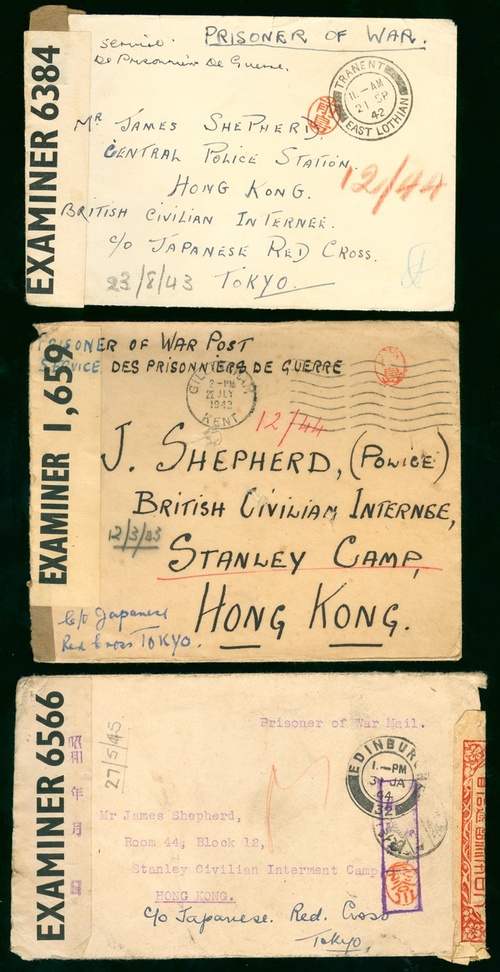 EXAMINER 6384
PRISONER OF WAR.
Service
De Prisonnier De Guerre.
TRANENT
11.-AM
21 SP
42
EAST LOTHIAN
MR JAMES SHEPHERD,
CENTRAL POLICE STATION
HONG KONG.
12/44
BRITISH CIVILIAN INTERNEE.
C/O JAPANESE RED CROSS.
23/8/43
TOKYO.
EXAMINER 1,659
PRISONER OF WAR POST
SERVICE DES PRISONNIERS DE GUERRE
2-PM
22 JLY
1942
KENT
12/44
J. SHEPHERD, (POLICE)
BRITISH CIVILIAN INTERNEE,
12/3/43
STANLEY CAMP,
HONG KONG.
C/o Japanese
Red Cross TOKYO.
EXAMINER 6566
昭和 年 月 日
27/5/45
Prisoner of War Mail.
EDINBUR
1.-PM
3 JA
44
32
Mr James Shepherd,
Room 44, Block 12,
Stanley Civilian Interment Camp
HONG KONG.
C/o Japanese. Red. Cross
Tokyo.